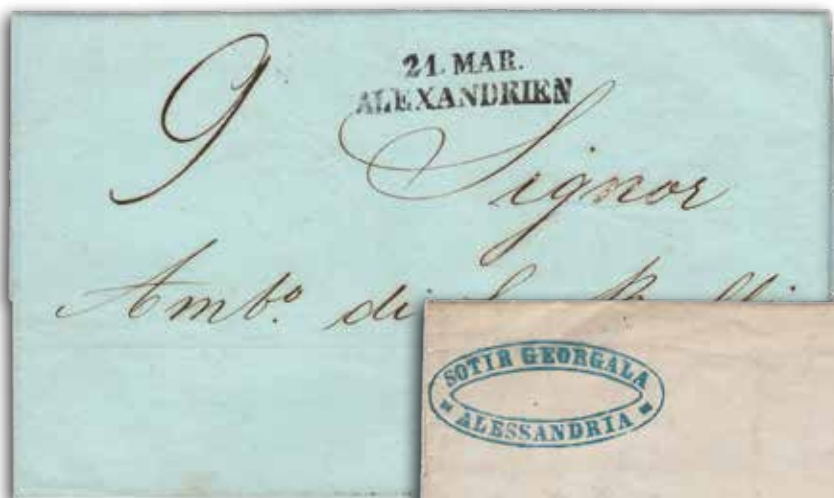 21. MAR.
ALEXANDRIEN
9 Signor
Ambº. di
SOTIR GEORGALA
ALESSANDRIA